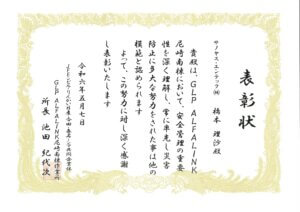 表彰状
サノヤス・エンテック㈱
橋本 理沙殿
貴殿は、GLP ALFALINK
尼崎南棟において、安全管理の重要
性を深く理解し、常に率先し災害
防止に多大な努力をされた事は他の
模範と認められます
よって、この努力に対し深く感謝
し表彰いたします
令和六年五月七日
GLP ALFALINK尼崎南棟作業所
所長 池田 紀代次